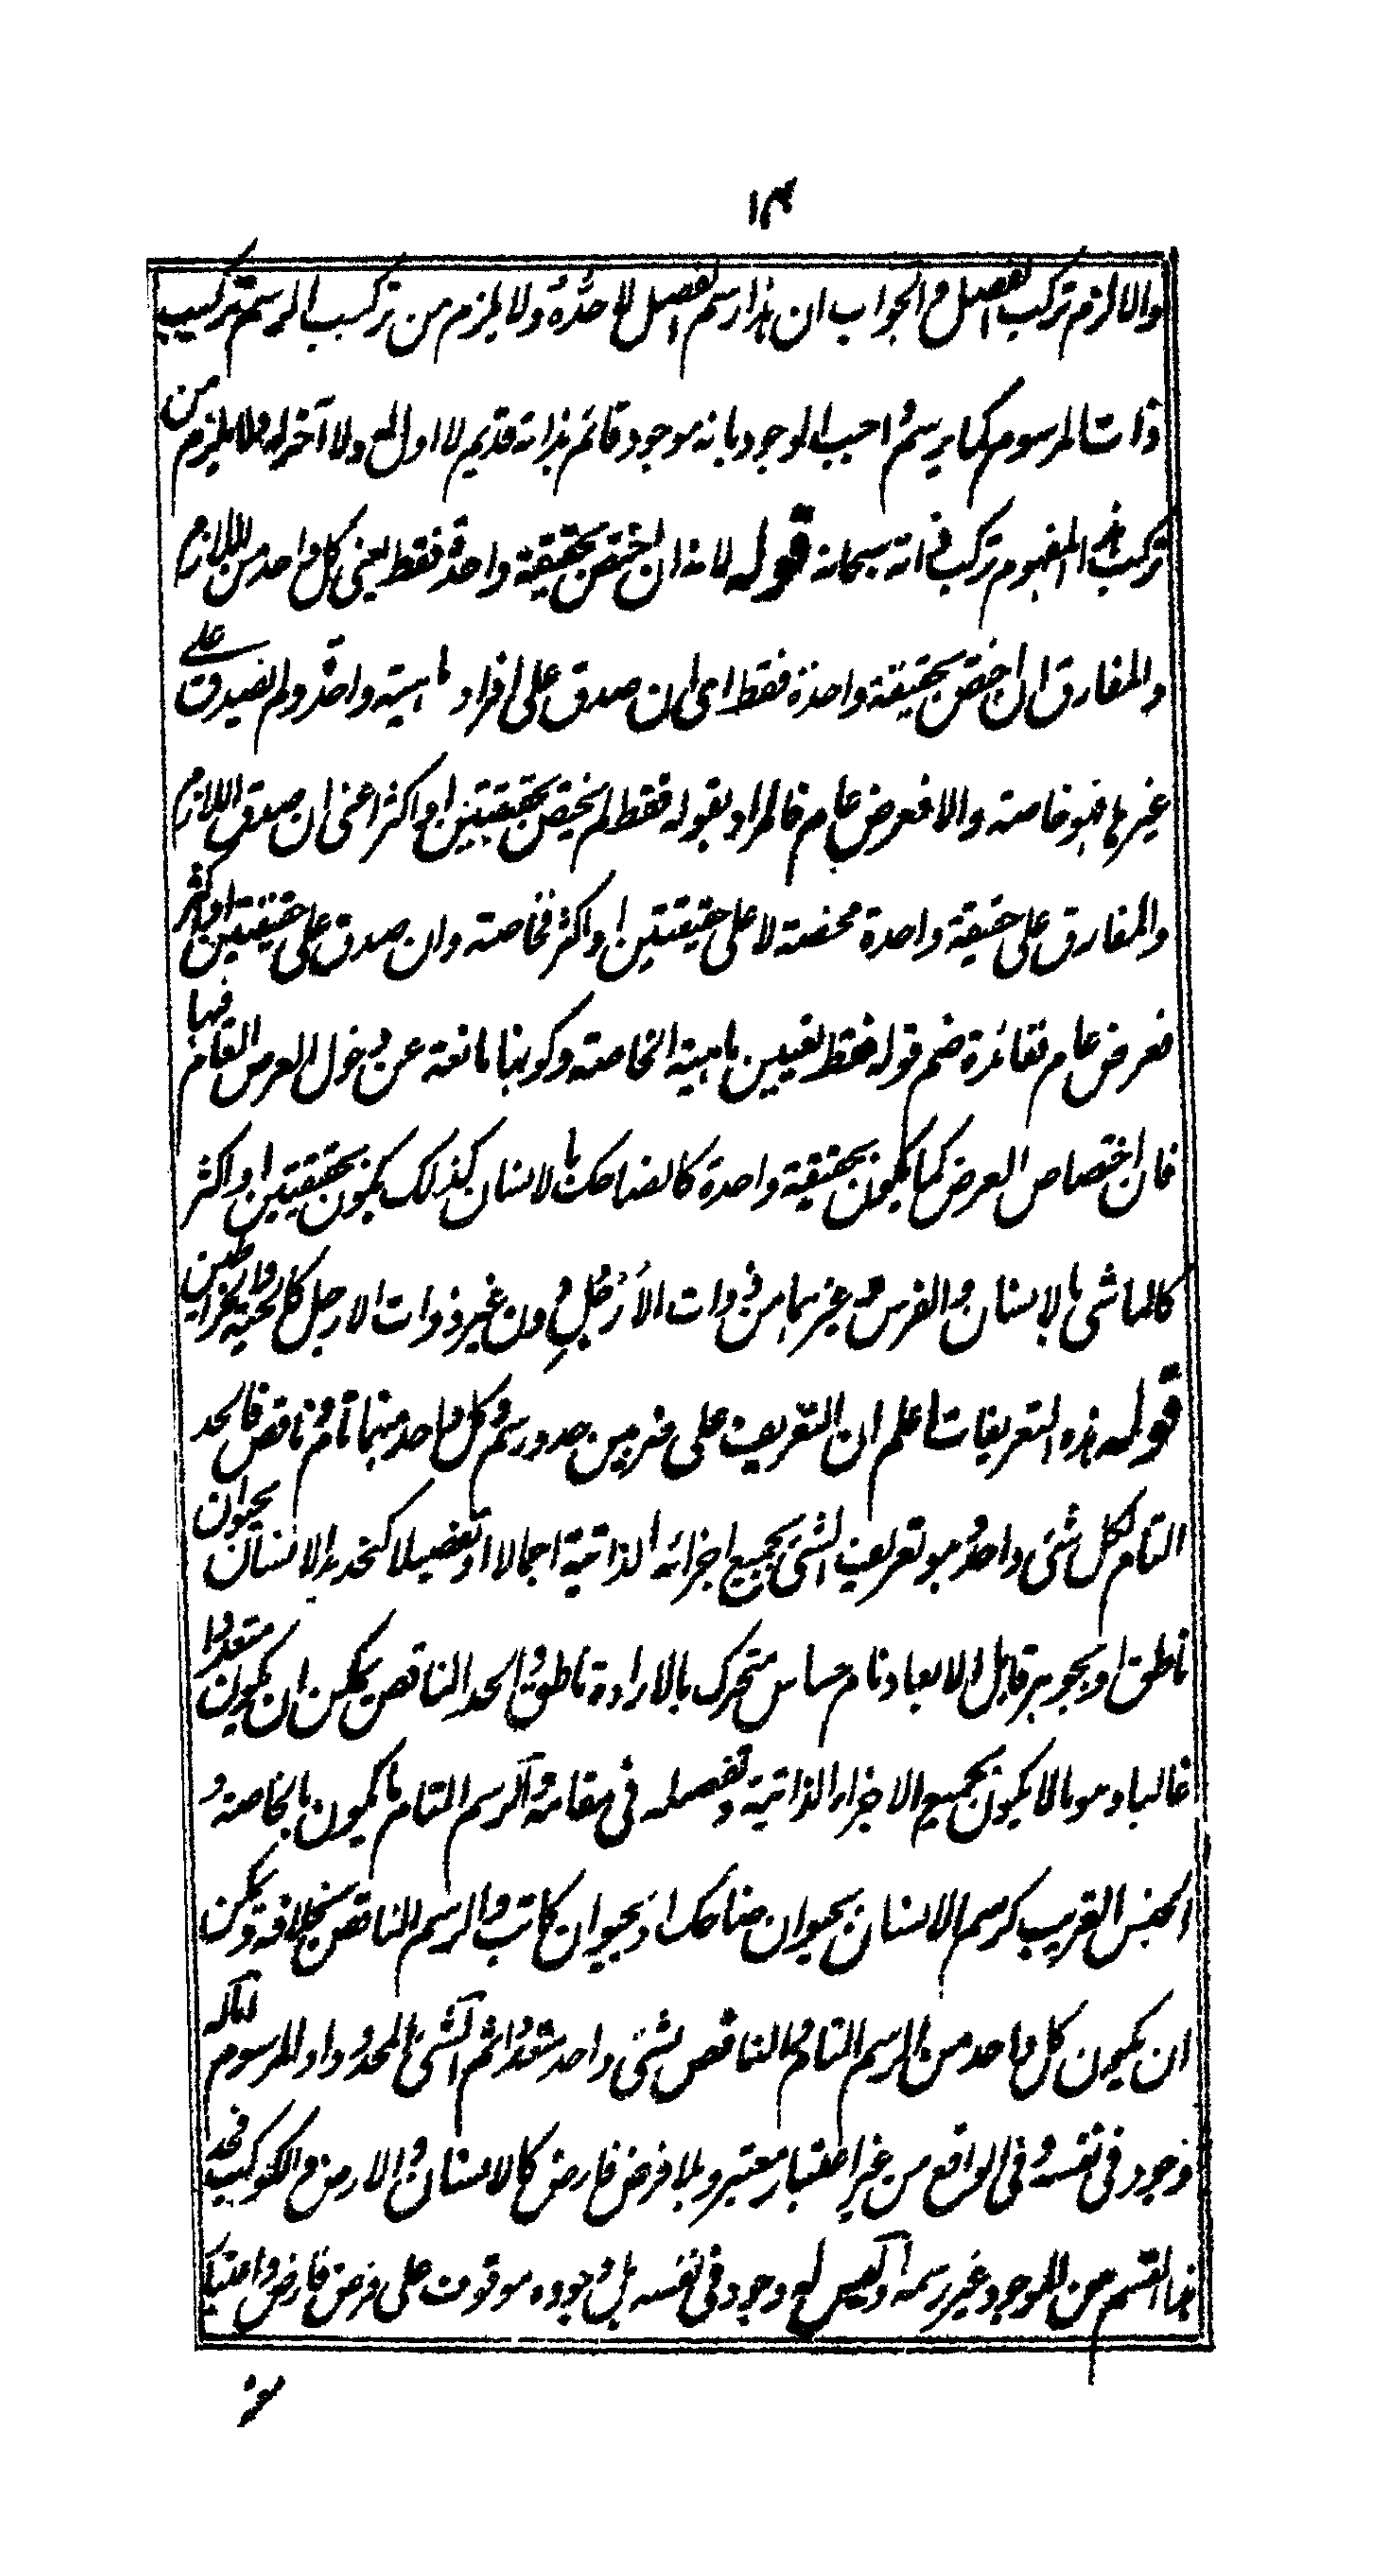 ١٤
والا لزم تركب الفصل والجواب ان هذا رسم الفصل لا حده ولا يلزم من تركب الرسم تركيب
ذات المرسوم كما يرسم واجب الوجود بانه موجود قائم بذاته قديم لا اول له ولا آخر له فلا يلزم من
تركب هذا المفهوم تركب ذاته سبحانه قوله لانه ان اختص بحقيقة واحدة فقط يعنى كل واحد من اللازم
والمفارق ان اختص بحقيقة واحدة فقط اى ان صدق على افراد ماهية واحدة ولم يصدق على
غيرها فهو خاصة والا فعرض عام فالمراد بقوله فقط لم يختص بحقيقتين او اكثر اعنى ان صدق اللازم
والمفارق على حقيقة واحدة محضة لا على حقيقتين او اكثر فخاصة وان صدق على حقيقتين او اكثر
فعرض عام ففائدة ضم قوله فقط تعيين ماهية الخاصة وكونها مانعة عن دخول العرض العام فيها
فان اختصاص العرض كما يكون بحقيقة واحدة كالضاحك بالانسان كذلك يكون بحقيقتين او اكثر
كالماشى بالانسان والفرس وغيرهما من ذوات الأرجل دون غير ذوات الارجل كالحية والخراطين
قوله هذه التعريفات اعلم ان التعريف على ضربين حد ورسم وكل واحد منهما تام وناقص فالحد
التام لكل شئ واحد وهو تعريف الشئ بجميع اجزائه الذاتية اجمالا او تفصيلا كتحديد الانسان بحيوان
ناطق او بجوهر قابل الابعاد نام حساس متحرك بالارادة ناطق والحد الناقص يمكن ان يكون متعددا
غالبا وهو ما لا يكون بجميع الاجزاء الذاتية وتفصيله فى مقامه والرسم التام ما يكون بالخاصة و
الجنس القريب كرسم الانسان بحيوان ضاحك او بحيوان كاتب والرسم الناقص بخلافه ويمكن
ان يكون كل واحد من الرسم التام والناقص لشئ واحد متعددا ثم الشئ المحدود او المرسوم اما له
وجود فى نفسه وفى الواقع من غير اعتبار معتبر وبلا فرض فارض كالانسان والارض والكوكب فحد
هذا القسم من الموجود غير رسمه او ليس له وجود فى نفسه بل وجوده موقوف على فرض فارض واعتبار